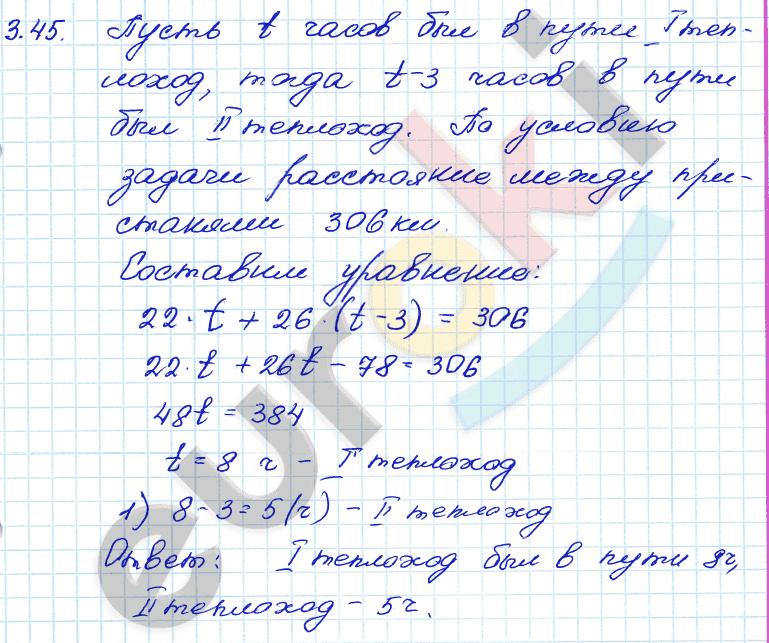 3.45. Пусть t часов был в пути I теп-
лоход, тогда t-3 часов в пути
был II теплоход. По условию
задачи расстояние между при-
станями 306 км.
Составим уравнение:
22·t + 26·(t-3) = 306
22·t + 26t - 78 = 306
48t = 384
t = 8 ч - I теплоход
1) 8-3=5(ч) - II теплоход
Ответ: I теплоход был в пути 8ч,
II теплоход - 5ч.
euroki